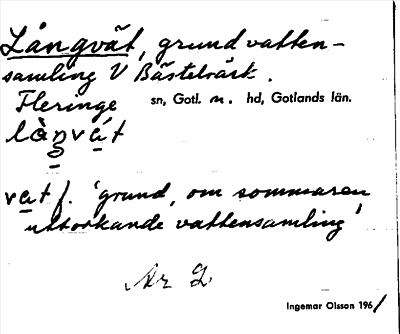 Långvät, grund vatten-
samling V Bästelträsk.
Fleringe sn, Gotl. n. hd, Gotlands län.
làŋvá̱t
va̱t f. 'grund, om sommaren
uttorkande vattensamling'
Nr 2
Ingemar Olsson 1961